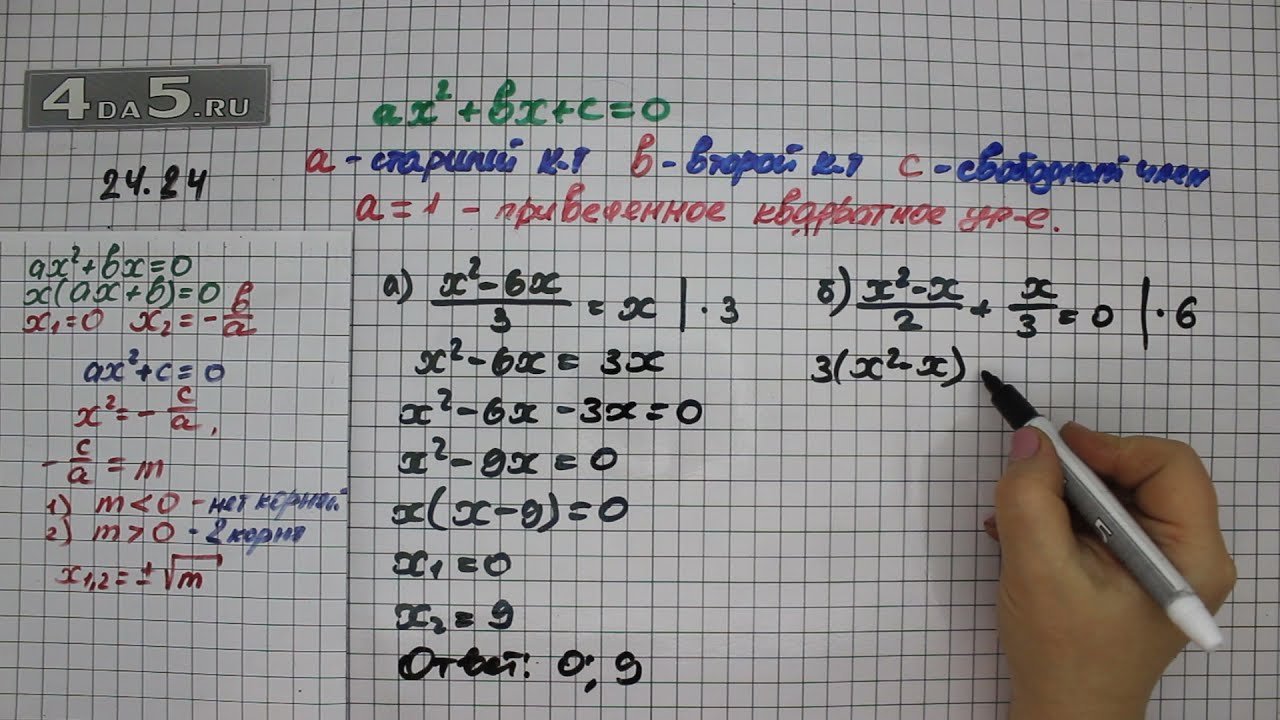 4DA5.RU
ax²+bx+c=0
a - старший к.т b - второй к.т c - свободный член
a=1 - приведенное квадратное ур-е.
24.24
ax²+bx=0
x(ax+b)=0
x₁=0 x₂=-b/a
ax²+c=0
x²=-c/a,
-c/a=m
1) m<0 - нет корней
2) m>0 - 2 корня
x₁,₂=±√m
а) (x²-6x)/3 = x | · 3
x²-6x = 3x
x²-6x-3x=0
x²-9x=0
x(x-9)=0
x₁=0
x₂=9
Ответ: 0; 9
б) (x²-x)/2 + x/3 = 0 | · 6
3(x²-x)